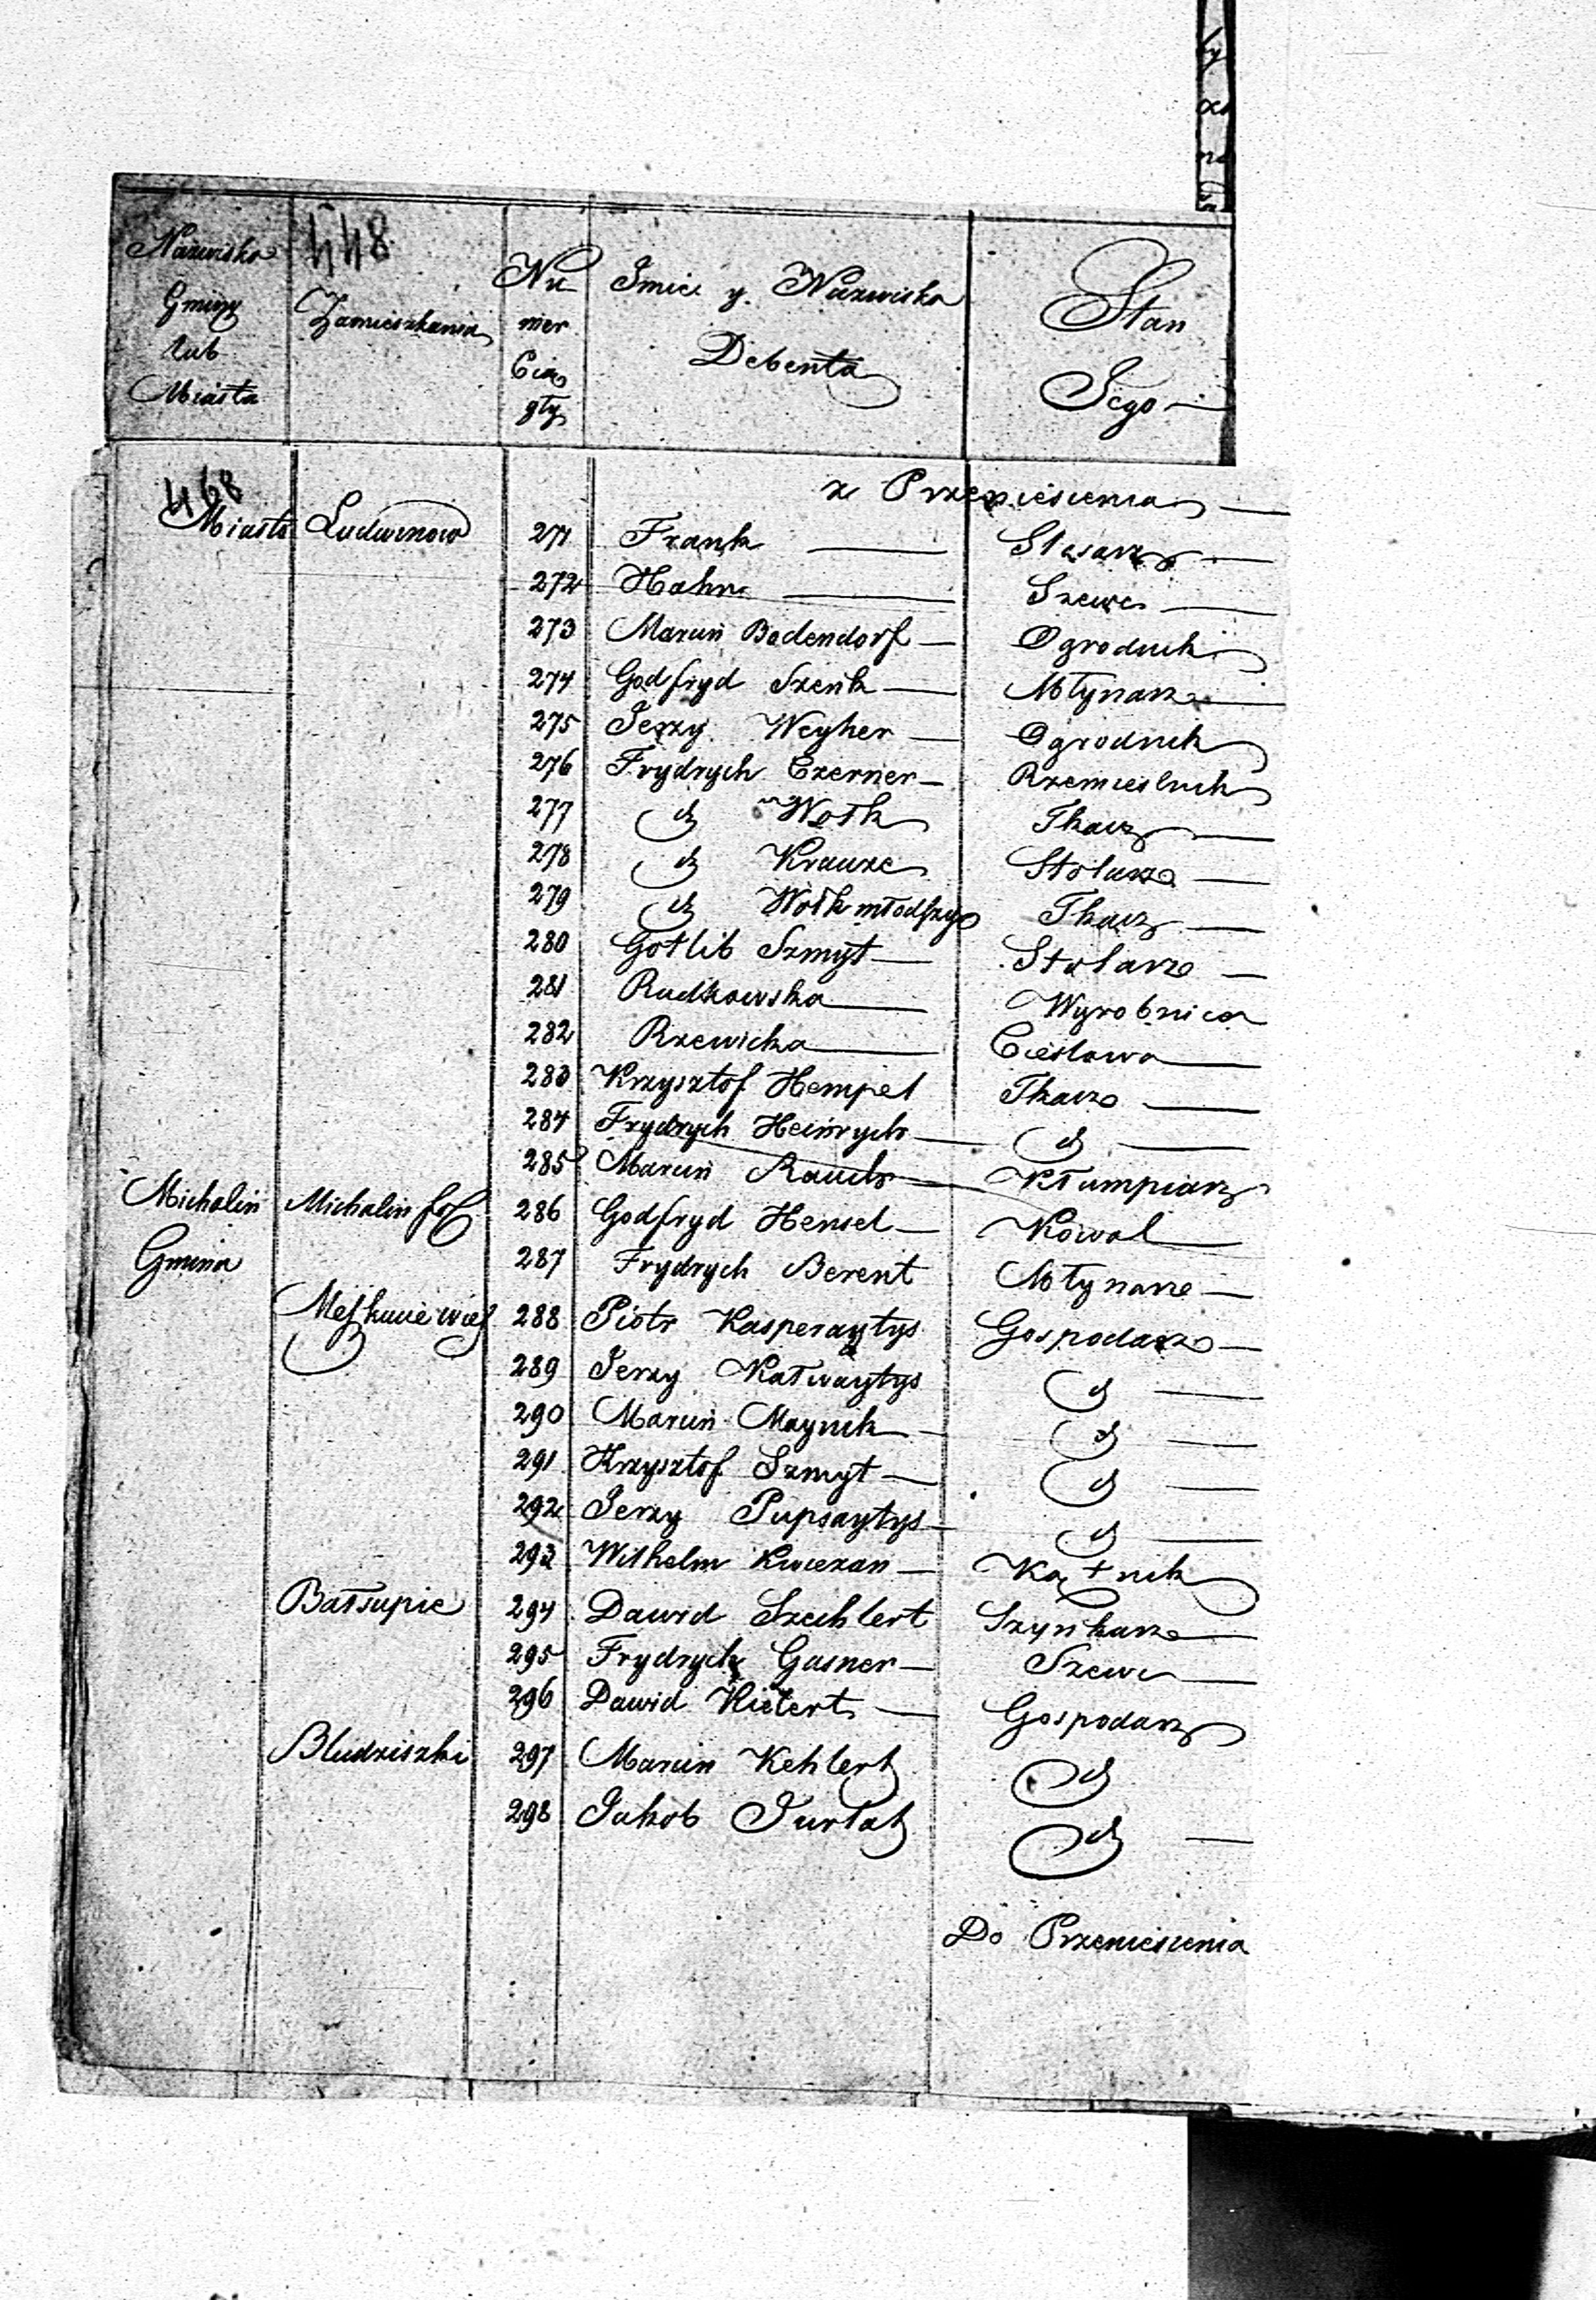 448
Nazwisko Gminy lub Miasta
Zamieszkania
Numer Ciągły
Imie y. Nazwisko Debenta
Stan Jego
z Przeniesienia
468
Miasto Ludwinow 271 Frank Slosarz
272 Hahn Szewc
273 Marcin Bodendorf Ogrodnik
274 Godfryd Szenk Młynarz
275 Jerzy Weyher Ogrodnik
276 Frydrych Czerner Rzemieslnik
277 d Wołk Tkacz
278 d Krauze Stolarz
279 d Wołk młodszy Tkacz
280 Gotlib Szmyt Stolarz
281 Rudkowska Wyrobnica
282 Rzewicka Cieslowa
283 Krzysztof Hempel Tkacz
284 Frydrych Heinrych d
285 Marcin Rauch Kłumpiarz
Michalin Gmina Michalin fol 286 Godfryd Hensel Kowal
287 Frydrych Berent Młynarz
Meszkucie wieś 288 Piotr Kasperaytys Gospodarz
289 Jerzy Katwaytys d
290 Marcin Maynik d
291 Krzysztof Szmyt d
292 Jerzy Pupsaytys d
293 Wilhelm Kątnik
Bałsupie 294 Dawid Szechlert Szynkarz
295 Frydrych Gasner Szewc
296 Dawid Kielert Gospodarz
Bludziszki 297 Marcin Kehlert d
298 Jakob Jurłat d
Do Przeniesienia